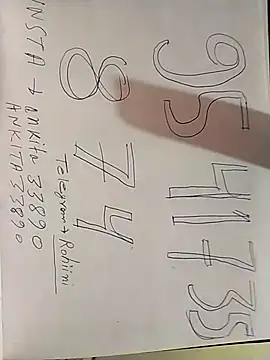 95 41735
874
Telegram → Rohini
INSTA → ankita 33890
ANKITA33890